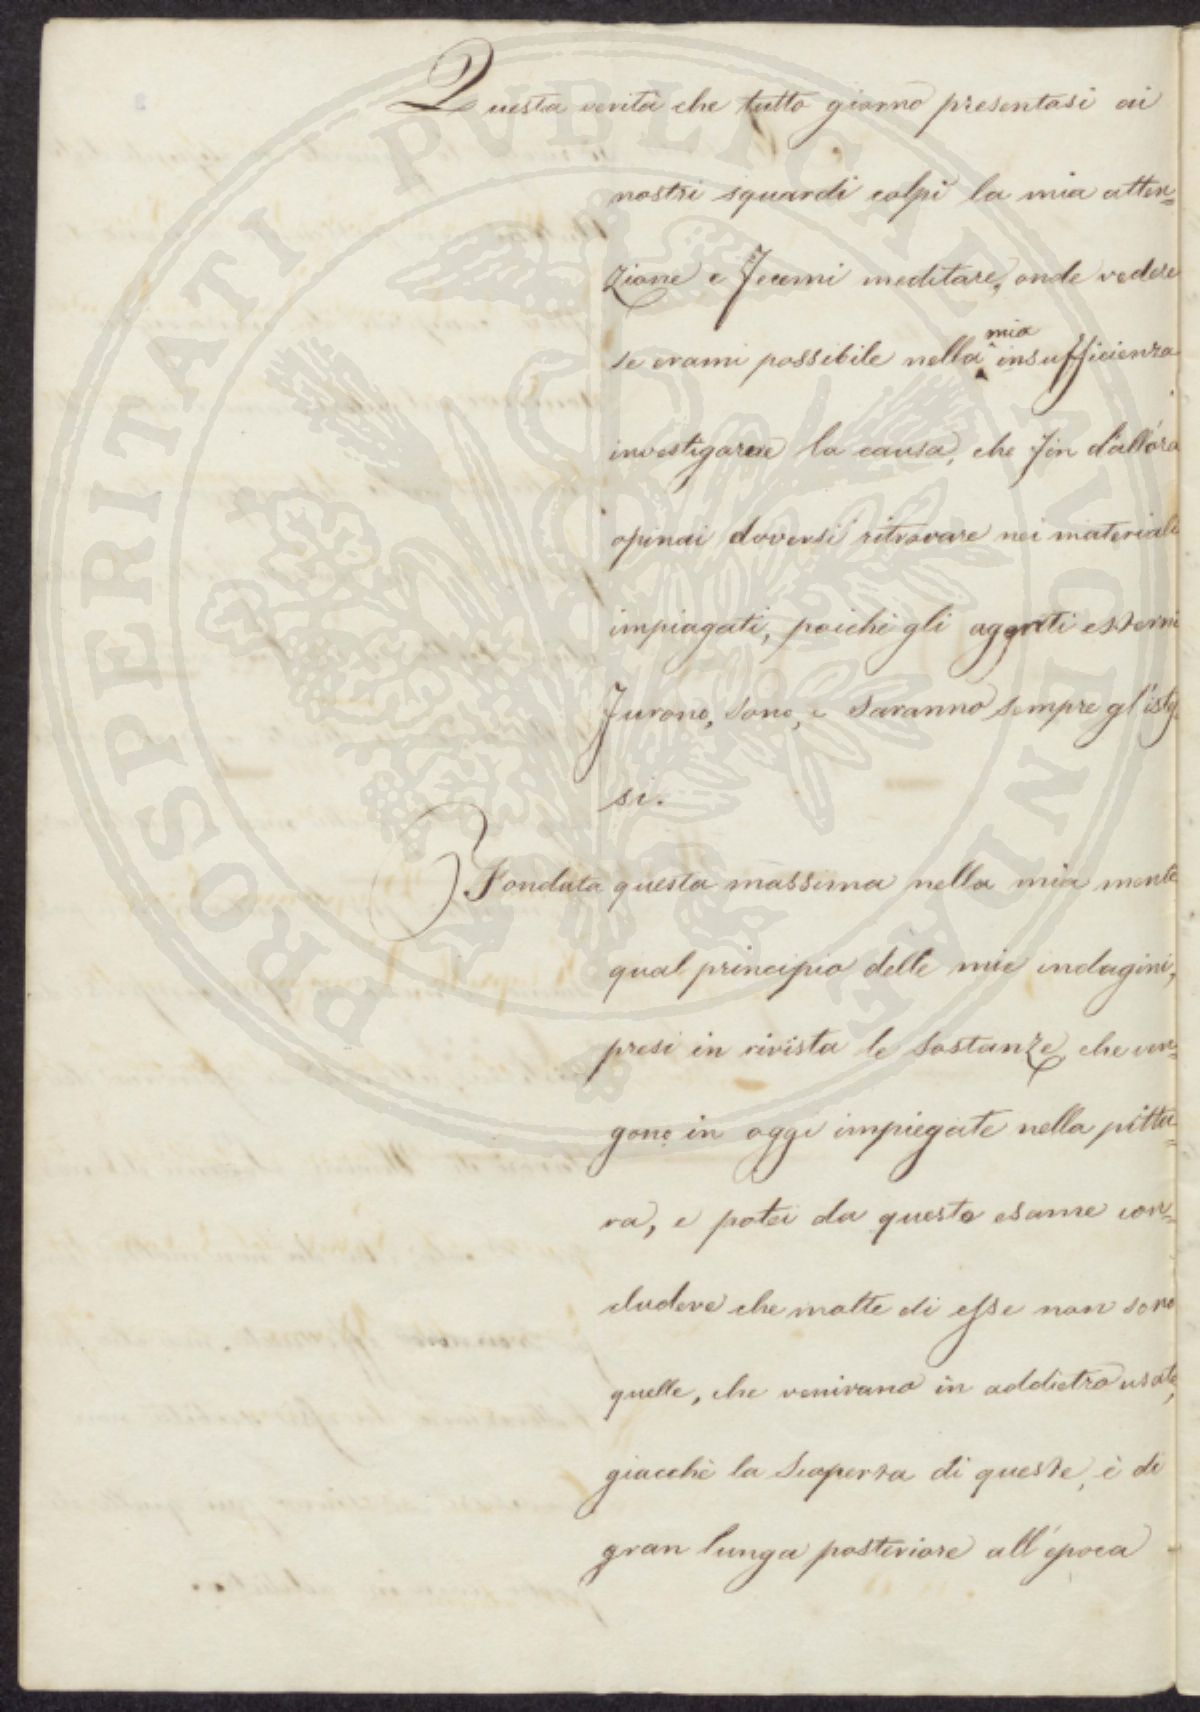 Questa verità che tutto giorno presentasi ai
nostri sguardi colpì la mia atten=
zione e fecemi meditare, onde vedere
se erami possibile nella mia insufficienza
investigarne la causa, che fin d'allora
opinai doversi ritrovare nei materiali
impiagati, poichè gli agenti esterni
furono, sono, e saranno sempre gl'istes
si.
Fondata questa massima nella mia mente
qual principio delle mie indagini,
presi in rivista le sostanze, che ven=
gono in oggi impiegate nella pittu=
ra, e potei da questo esame con=
cludere che molte di esse non sono
quelle, che venivano in addietro usate,
giacchè la scoperta di queste, è di
gran lunga posteriore all'epoca
PROSPERITATI PUBLICAE AUGENDAE